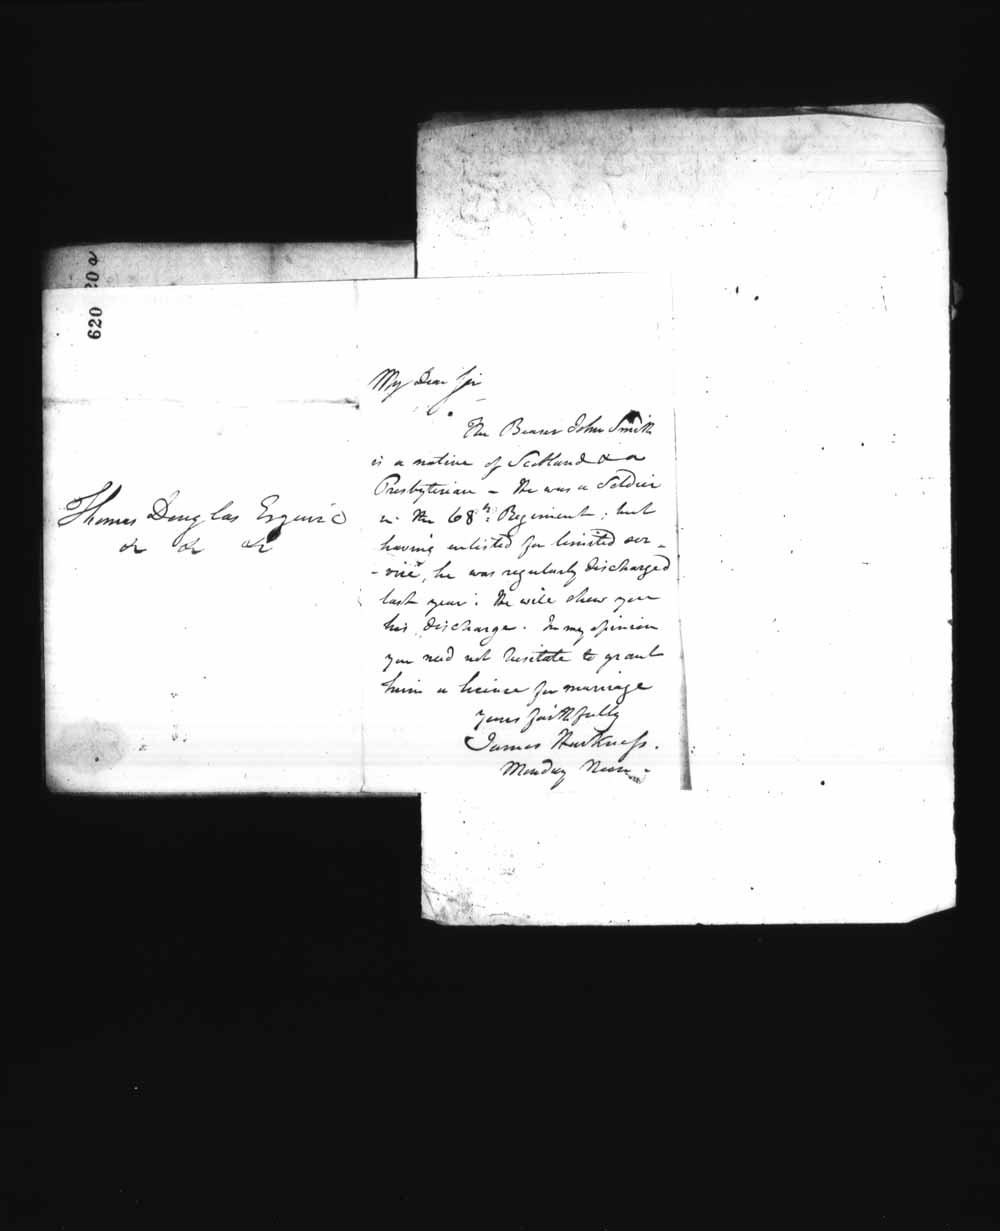 620
20a
Thomas Douglas Esquire
&c &c &c
My Dear Sir
The Bearer John Smith
is a native of Scotland & a
Presbyterian - He was a Soldier
in the 68th. Regiment; but
having enlisted for limited ser-
-vice, he was regularly discharged
last year. He will shew you
his discharge. In my opinion
you need not hesitate to grant
him a licence for marriage
yours faithfully
James Harkness.
Monday Noon -